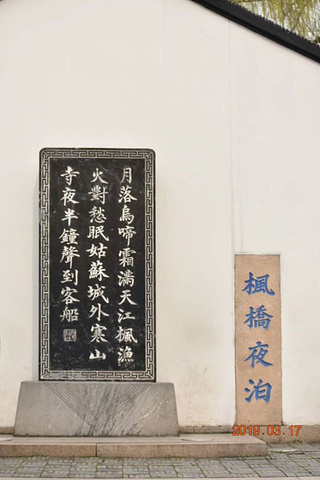 月落烏啼霜滿天江楓漁
火對愁眠姑蘇城外寒山
寺夜半鐘聲到客船
楓橋夜泊
2018.03.17